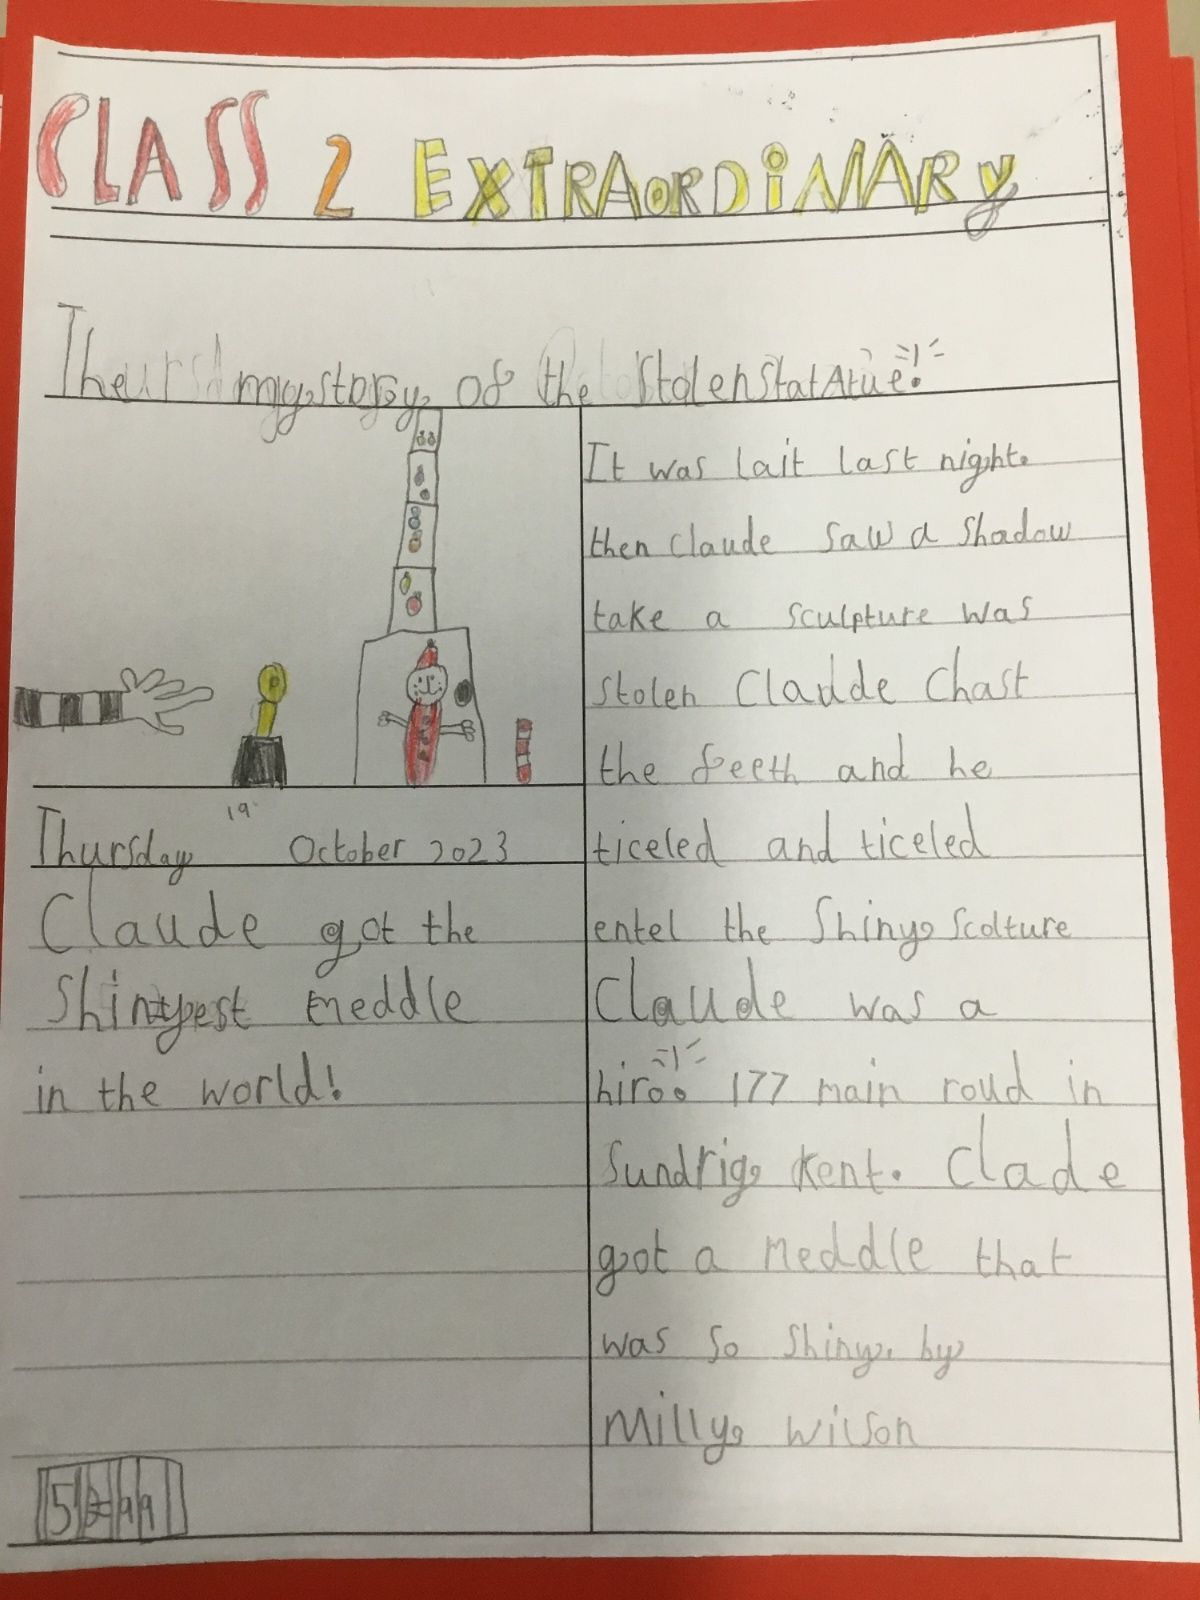 CLASS 2 EXTRAORDINARY
The mystory of the Stolen StatAtue!
19
Thursday October 2023
Claude got the
Shinyest meddle
in the world!
It was lait last night.
then claude saw a shadow
take a sculpture was
stolen Claude Chast
the feeth and he
ticeled and ticeled
entel the Shiny Scolture
Claude was a
hiro! 177 main roud in
Sundrig Kent. Clade
got a meddle that
was so shiny. by
Milly Wilson